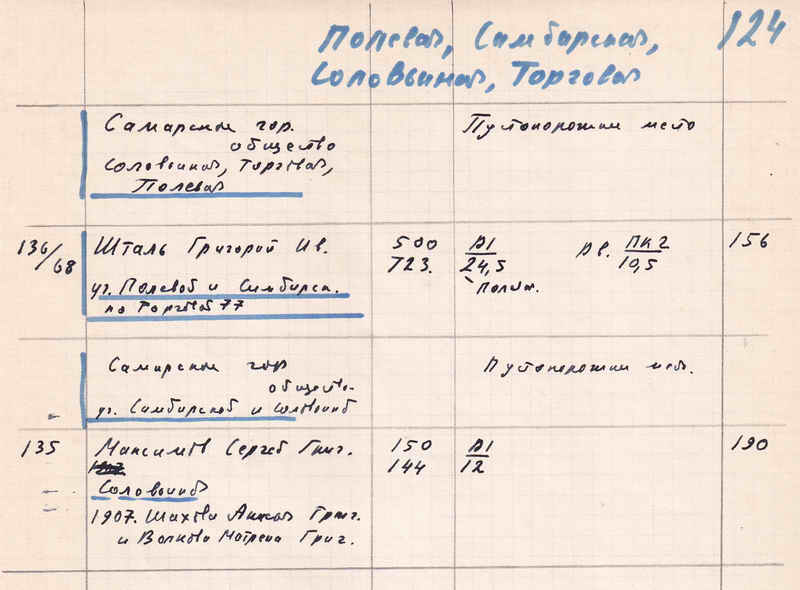 Полевая, Симбирская, 124
Соловьиная, Торговая
Самарское гор. Пустопорожнее место
общество
Соловьиная, Торговая,
Полевая
136/68 Шталь Григорий Ив. 500 Д1 дв. ПК2 156
723. 24,5 10,5
уг. Полевой и Симбирск. полик.
по Торговой 77
Самарское гор Пустопорожнее мес.
общество
уг. Симбирской и Соловьиной
135 Максимов Сергей Григ. 150 Д1 190
144 12
Соловьиной
1907. Шахова Анна Григ.
и Волкова Матрена Григ.